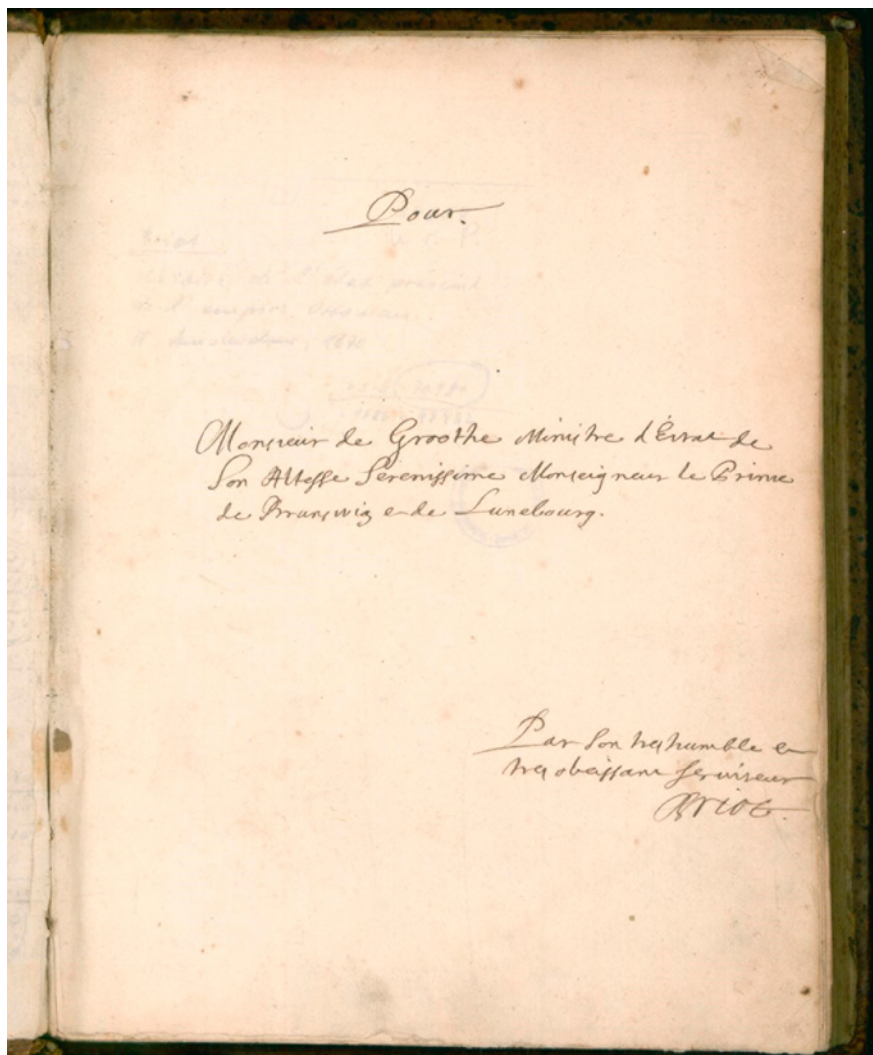 Pour.
Monsieur de Groothe Ministre d'Estat de
Son Altesse Serenissime Monseigneur le Prince
de Brunswig e de Lunebourg.
Par son tres humble e
tres obeissant serviteur
Briot.